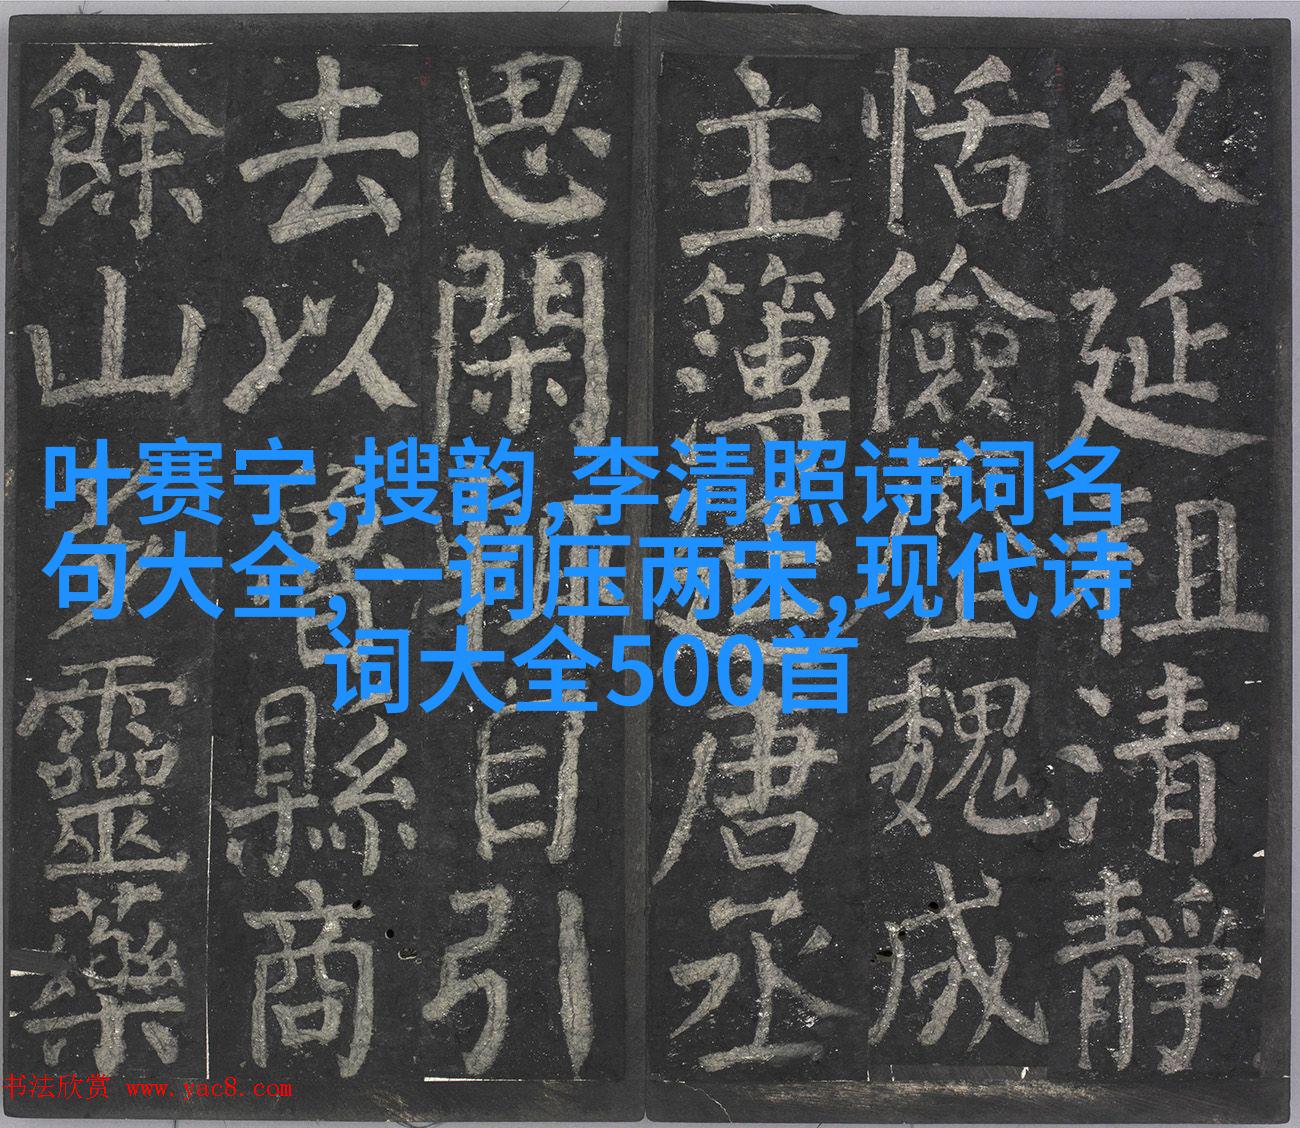 父延祖清靜
恬儉歷魏成
主簿延唐丞
思閑輒自引
去以魯縣商
餘山多靈藥
叶赛宁,搜韵,李清照诗词名
句大全,一词压两宋,现代诗
词大全500首
书法欣赏 www.yac8.com